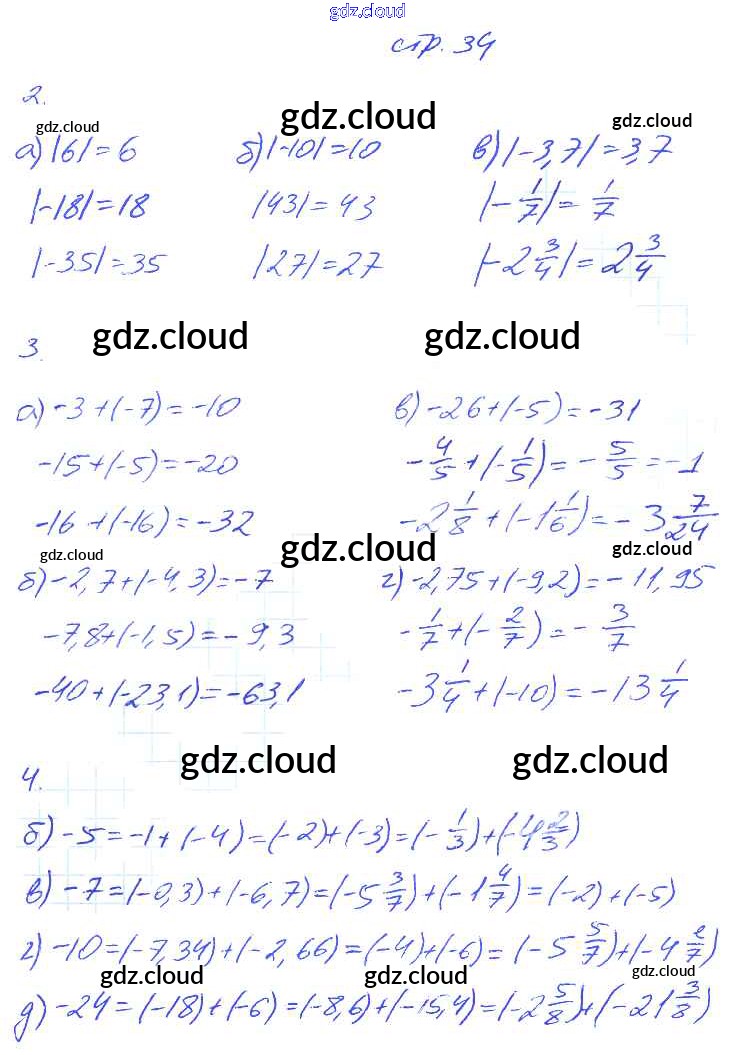 gdz.cloud
стр. 34
2.
gdz.cloud gdz.cloud gdz.cloud
а) |6| = 6 б) |-10| = 10 в) |-3,7| = 3,7
|-18| = 18 |43| = 43 |-1/7| = 1/7
|-35| = 35 |27| = 27 |-2 3/4| = 2 3/4
gdz.cloud gdz.cloud
3.
а) -3 + (-7) = -10 в) -26 + (-5) = -31
-15 + (-5) = -20 -4/5 + (-1/5) = -5/5 = -1
-16 + (-16) = -32 -2 1/8 + (-1 1/6) = -3 7/24
gdz.cloud gdz.cloud gdz.cloud
б) -2,7 + (-4,3) = -7 г) -2,75 + (-9,2) = -11,95
-7,8 + (-1,5) = -9,3 -1/7 + (-2/7) = -3/7
-40 + (-23,1) = -63,1 -3 1/4 + (-10) = -13 1/4
gdz.cloud gdz.cloud
4.
б) -5 = -1 + (-4) = (-2) + (-3) = (-1/3) + (-4 2/3)
в) -7 = (-0,3) + (-6,7) = (-5 3/7) + (-1 4/7) = (-2) + (-5)
г) -10 = (-7,34) + (-2,66) = (-4) + (-6) = (-5 5/7) + (-4 2/7)
gdz.cloud gdz.cloud gdz.cloud
д) -24 = (-18) + (-6) = (-8,6) + (-15,4) = (-2 5/8) + (-21 3/8)